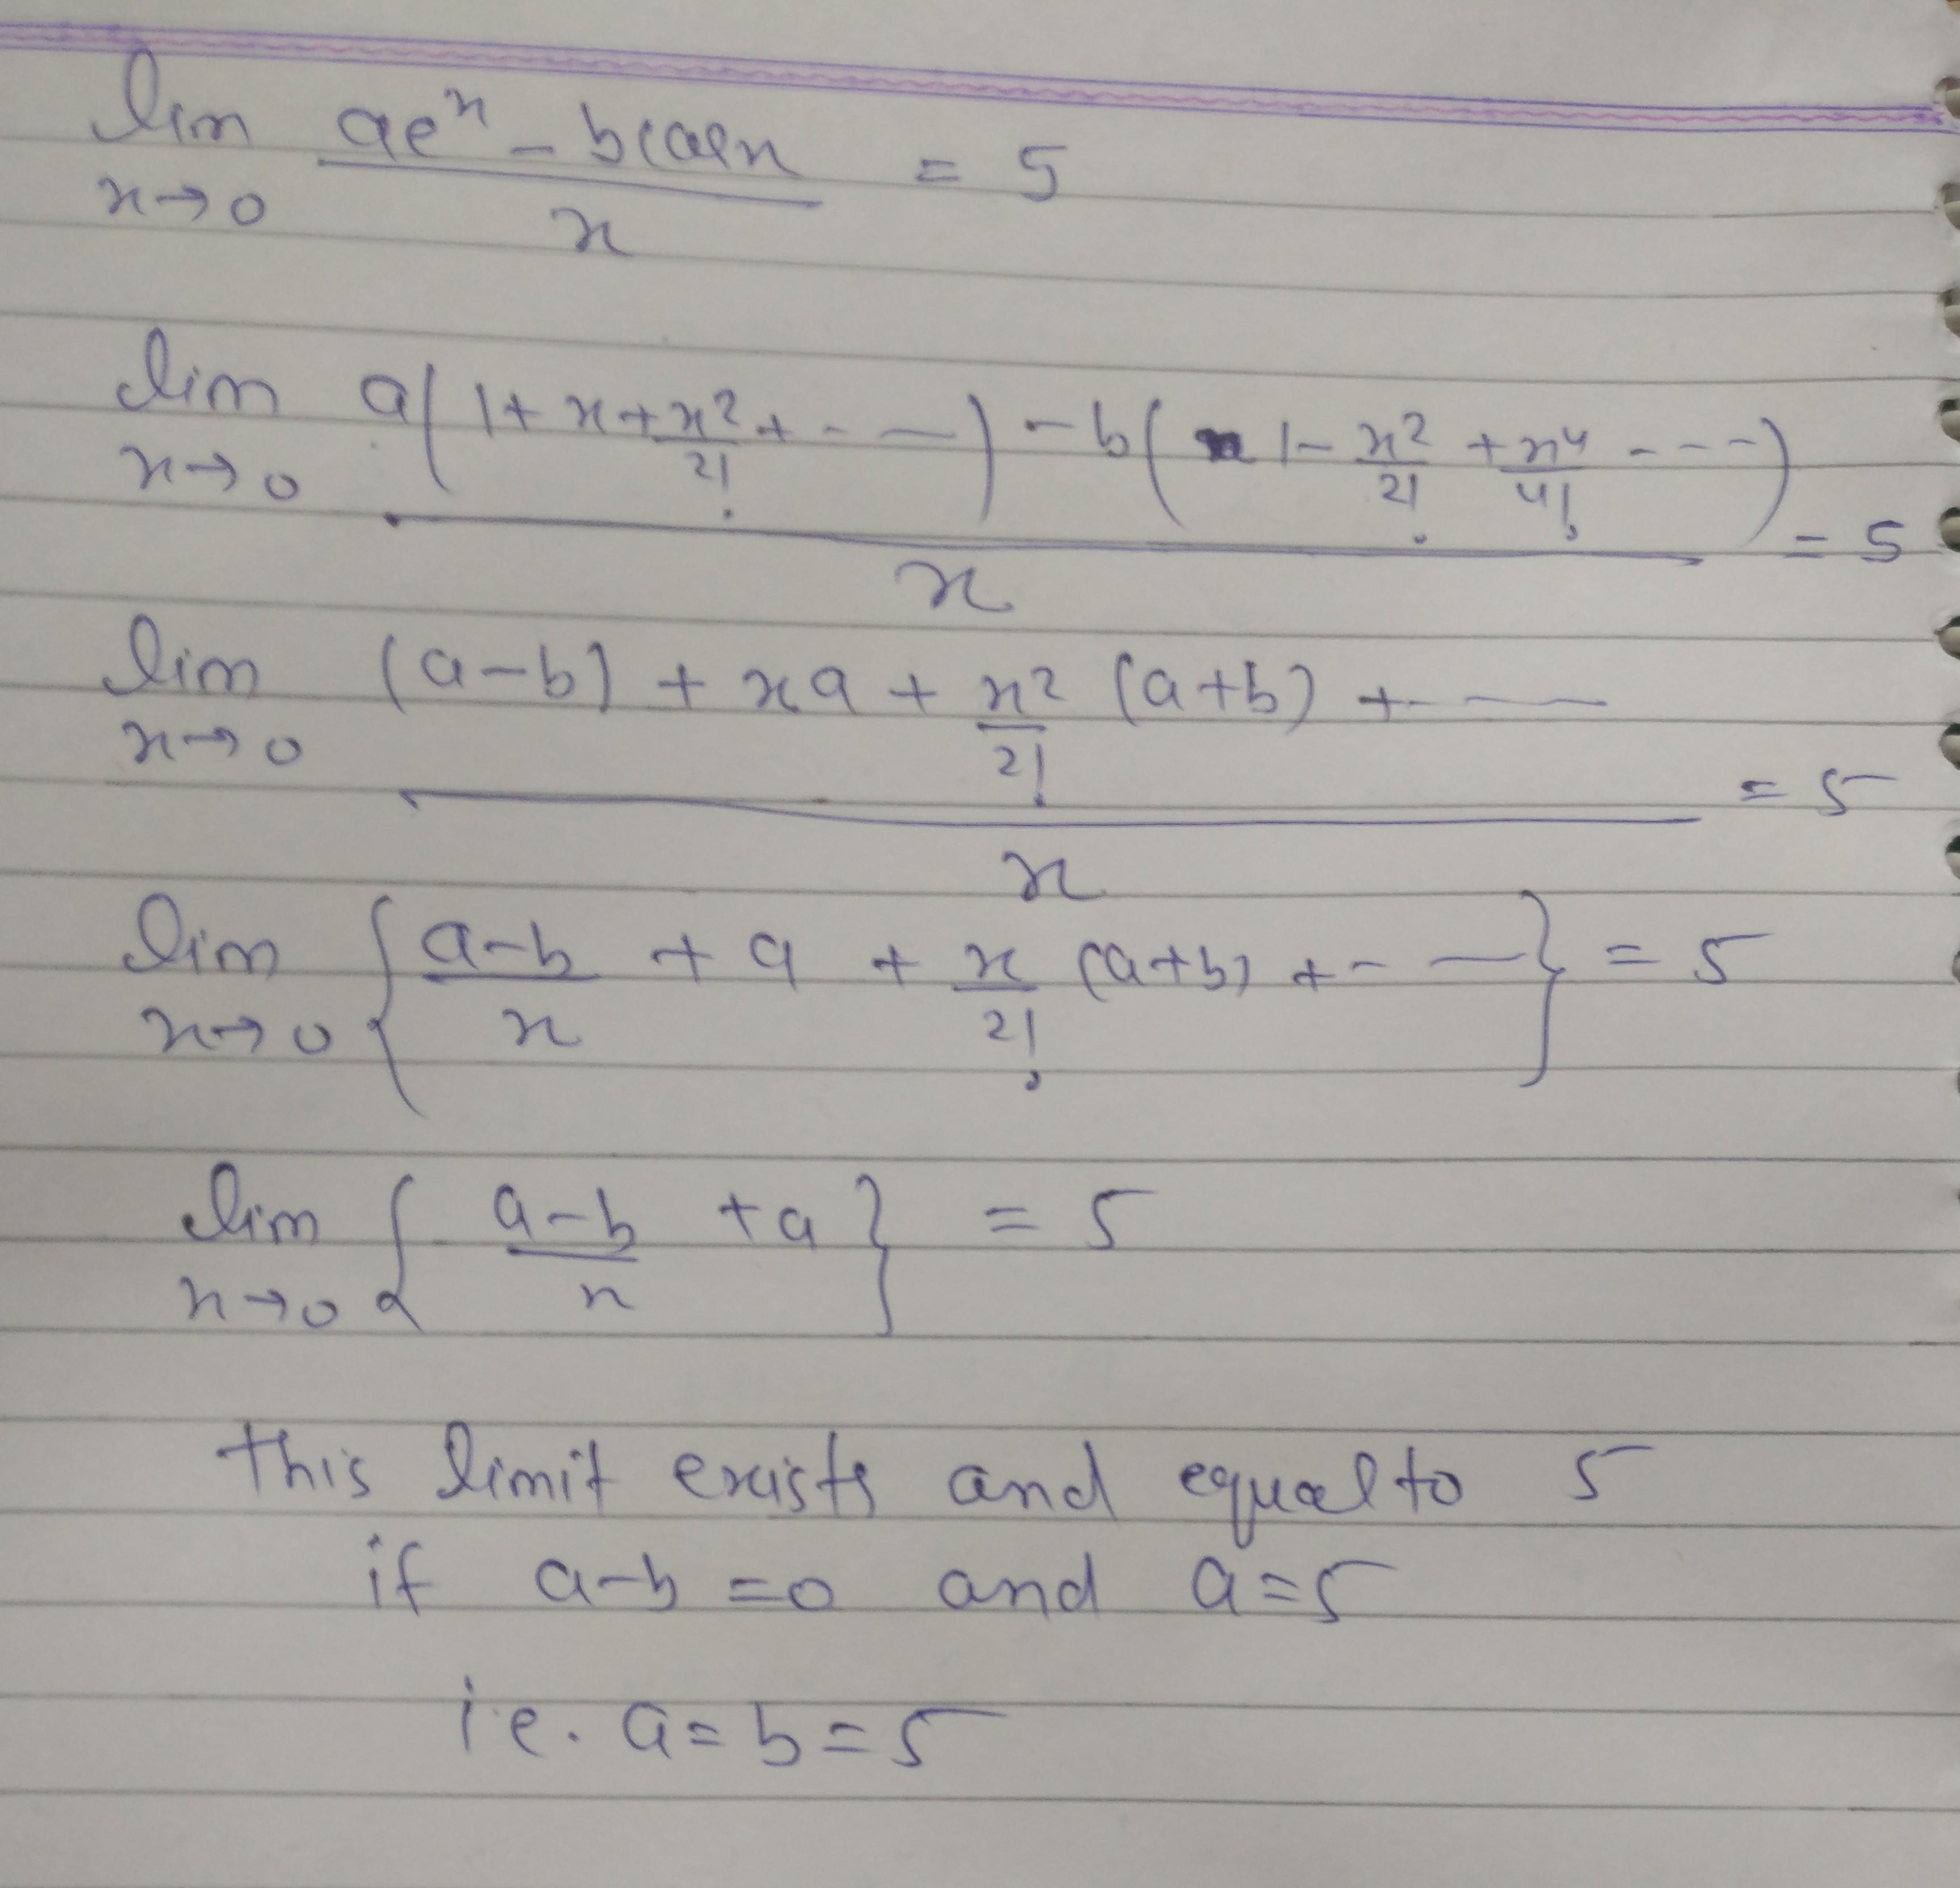 lim ae^x - bcosx / x = 5
x→0
lim a(1 + x + x²/2! + - - —) - b(1 - x²/2! + x⁴/4! - - - -) / x = 5
x→0
lim (a-b) + xa + x²/2! (a+b) + - — / x = 5
x→0
lim { a-b/x + a + x/2! (a+b) + - — } = 5
x→0
lim { a-b/x + a } = 5
x→0
This limit exists and equal to 5
if a-b=0 and a=5
i.e. a=b=5